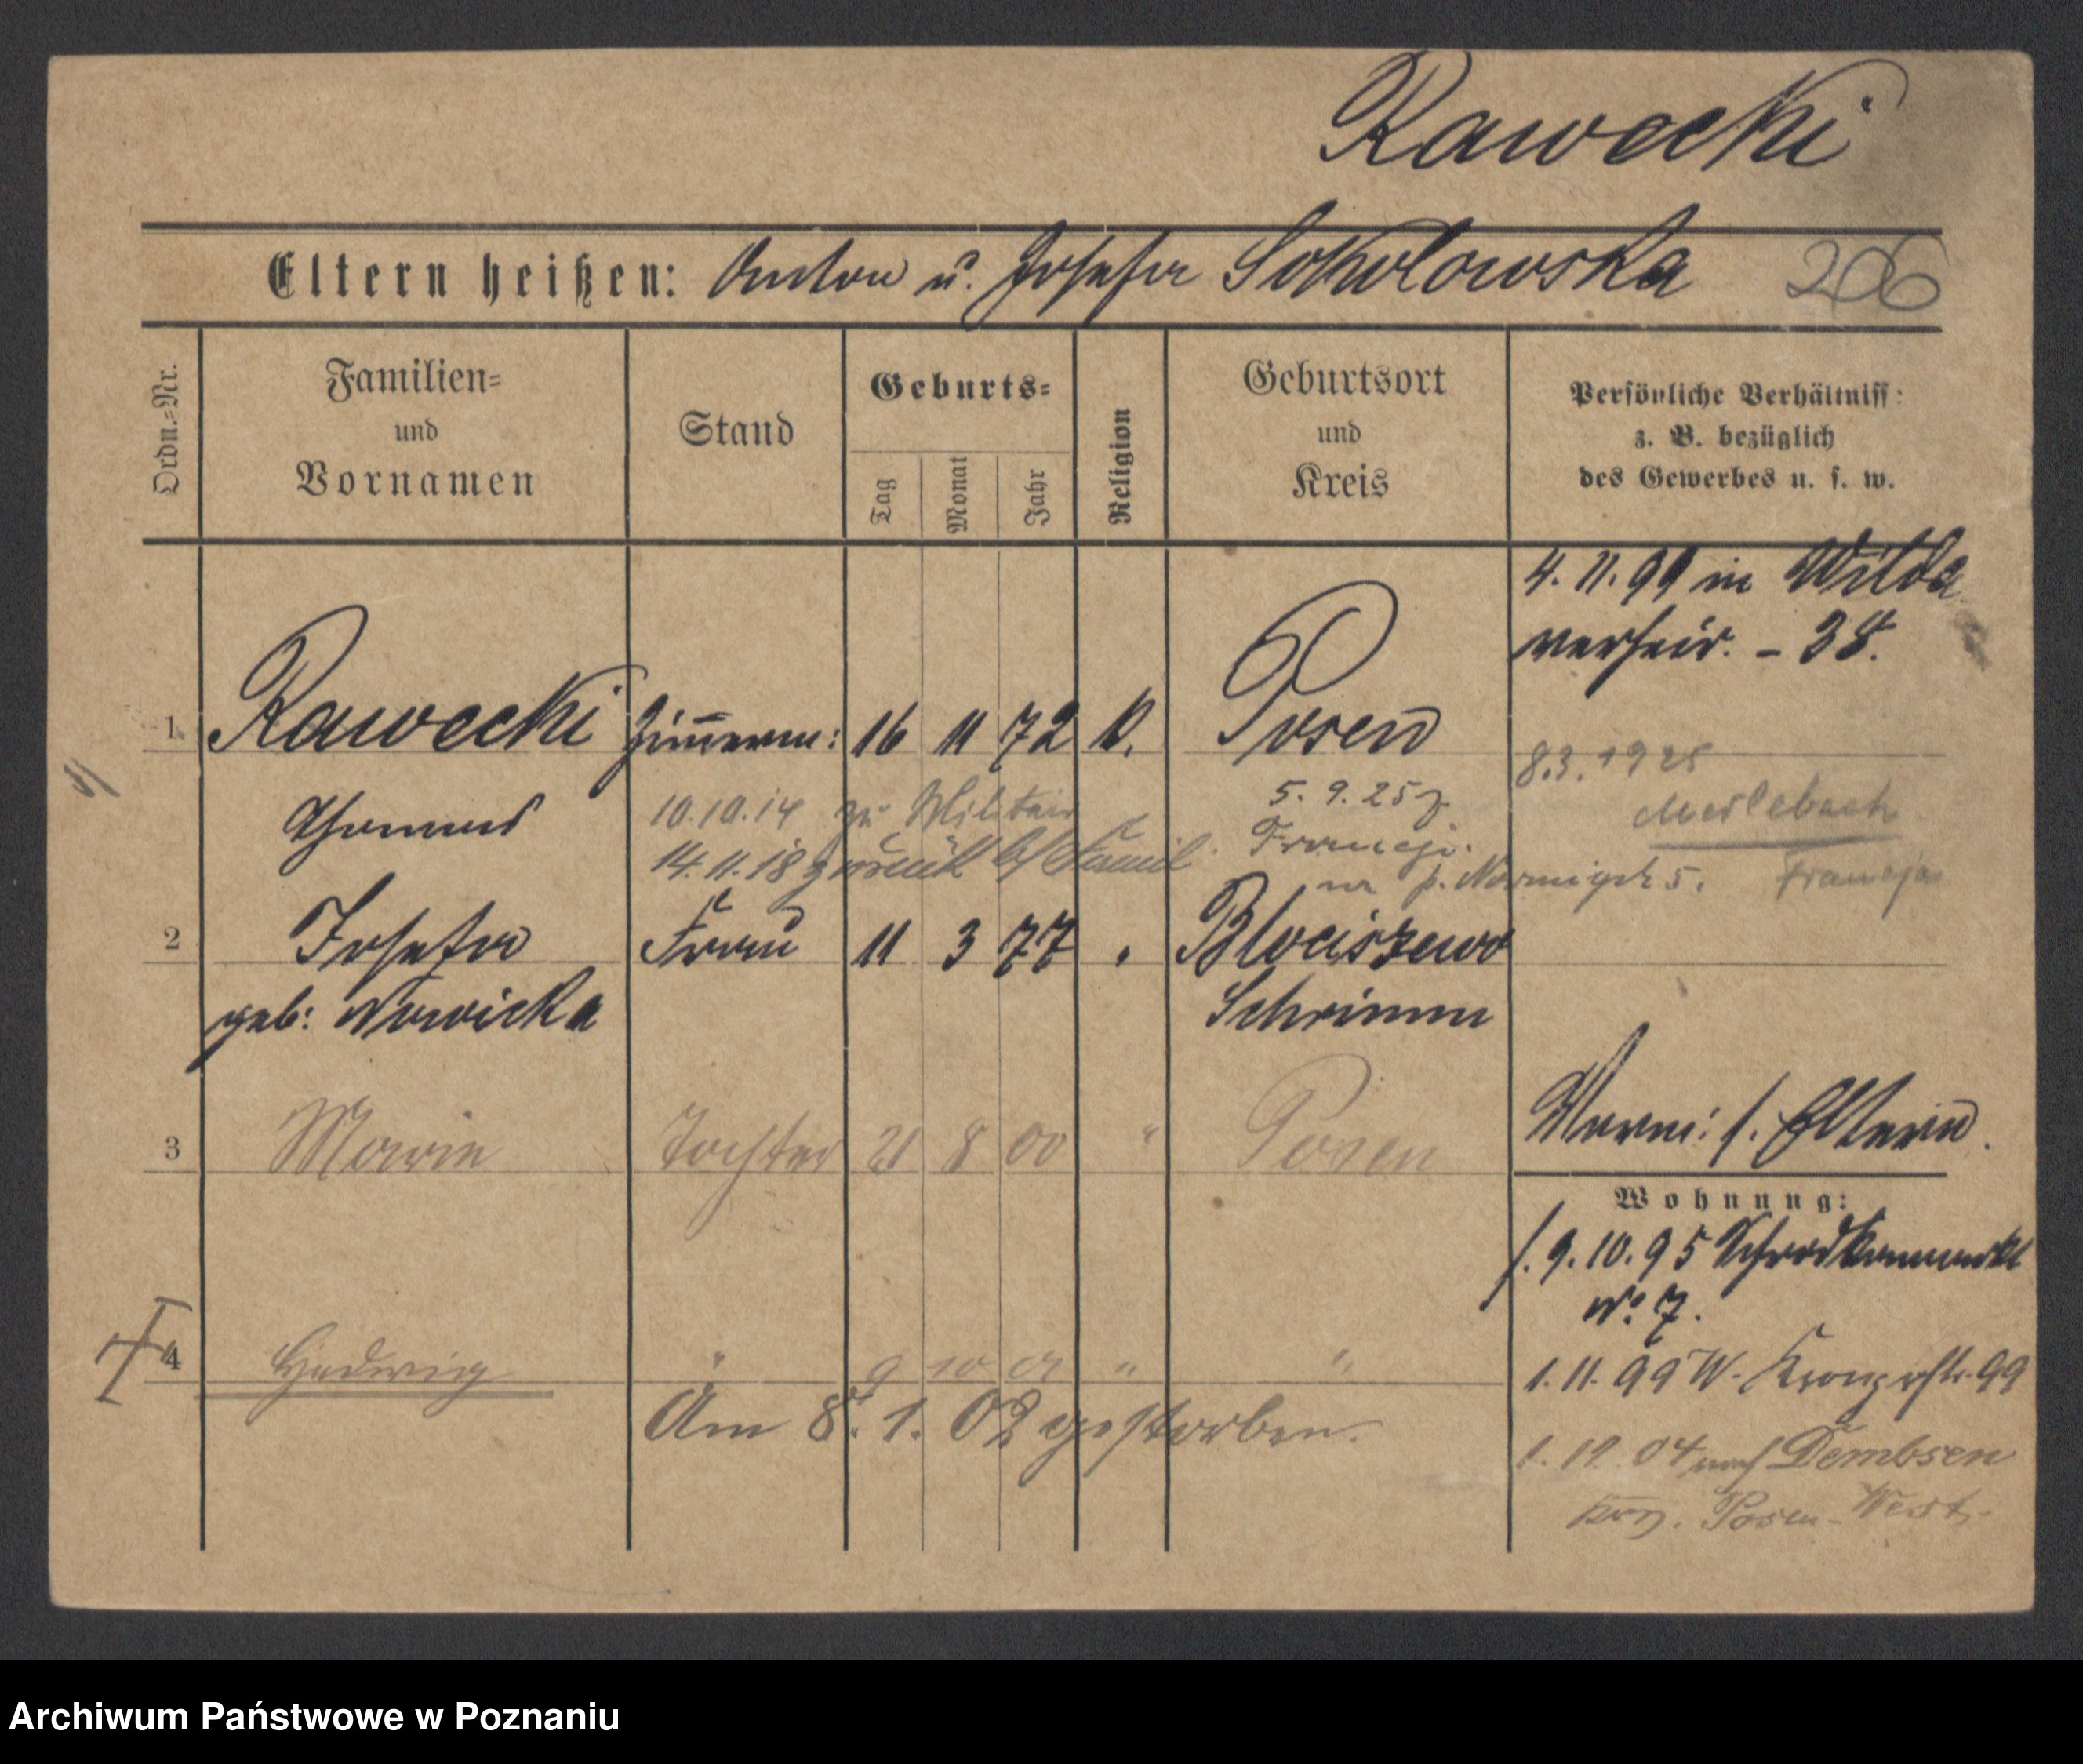 Rawecki
Eltern heißen: Anton u. Josefa Sokolowska 206
Ordn.=Nr.
Familien=
und
Vornamen
Stand
Geburts=
Tag
Monat
Jahr
Religion
Geburtsort
und
Kreis
Persönliche Verhältniss:
z. B. bezüglich
des Gewerbes u. s. w.
4. 11. 99 in Wilda
verheir. - 38.
1 Rawecki Zimmerm: 16 11 72 K. Posen
8.3.1925
Thomas
10.10.14 zu Militair
5. 9. 25 z
14.11.18 zurück
Francji.
Francja
2 Josefa Frau 11 3 77 " Blociszewo
geb: Nowicka Schrimm
3 Marie Tochter 21 8 00 " Posen
Vorm: s. Eltern.
Wohnung:
9. 10. 95 Schrodkamarkt
No 7.
4 Hedwig " 9 10 01 " "
1. 11. 99 W. Kronprzstr. 99
Am 8. 1. 02 gestorben.
04 nach Dembsen
Posen-West.